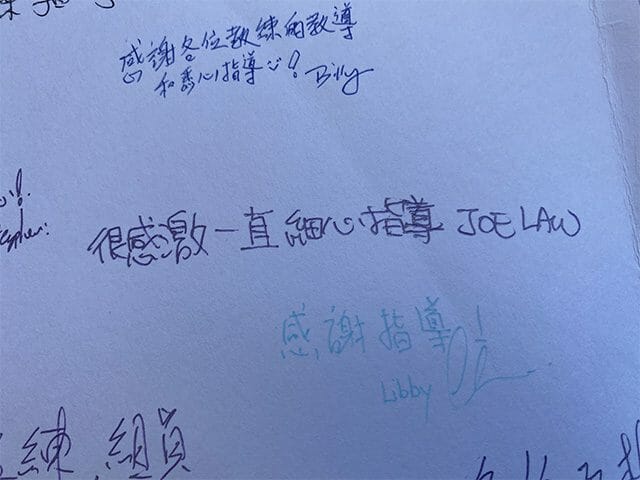 感謝各位教練的教導
和悉心指導☺! Billy
很感激一直細心指導 JOE LAW
感謝指導
Libby
練 組員